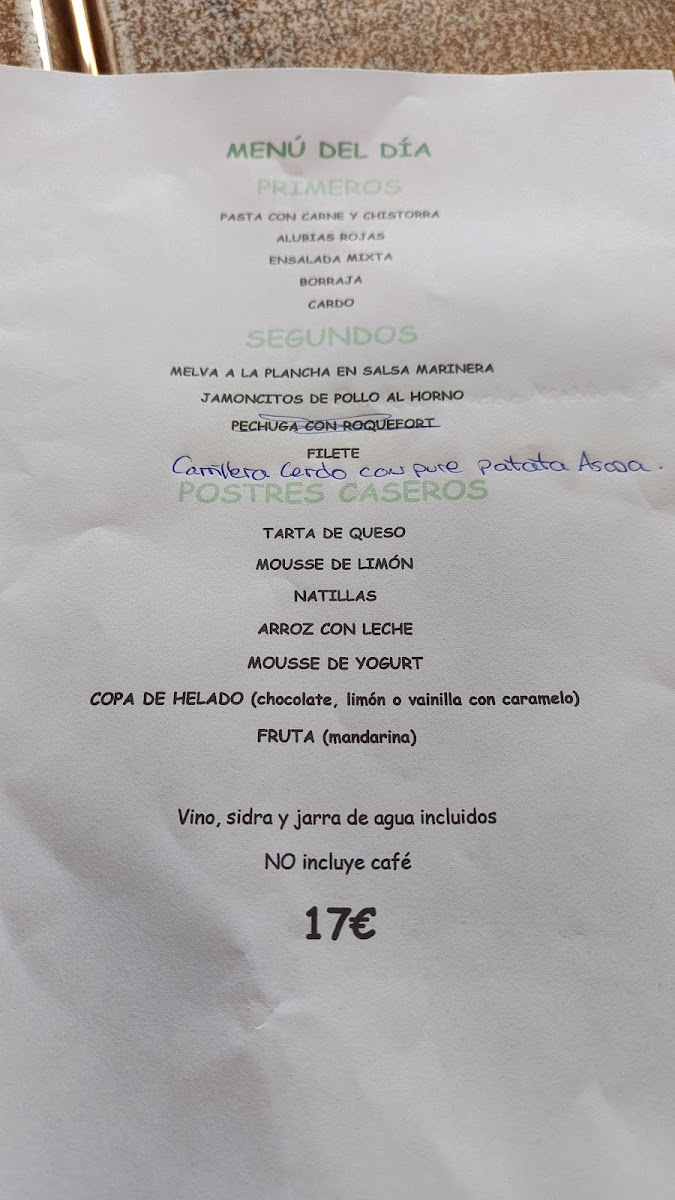 MENÚ DEL DÍA
PRIMEROS
PASTA CON CARNE Y CHISTORRA
ALUBIAS ROJAS
ENSALADA MIXTA
BORRAJA
CARDO
SEGUNDOS
MELVA A LA PLANCHA EN SALSA MARINERA
JAMONCITOS DE POLLO AL HORNO
PECHUGA CON ROQUEFORT
FILETE
Carrillera Cerdo con pure patata Asada.
POSTRES CASEROS
TARTA DE QUESO
MOUSSE DE LIMÓN
NATILLAS
ARROZ CON LECHE
MOUSSE DE YOGURT
COPA DE HELADO (chocolate, limón o vainilla con caramelo)
FRUTA (mandarina)
Vino, sidra y jarra de agua incluidos
NO incluye café
17€